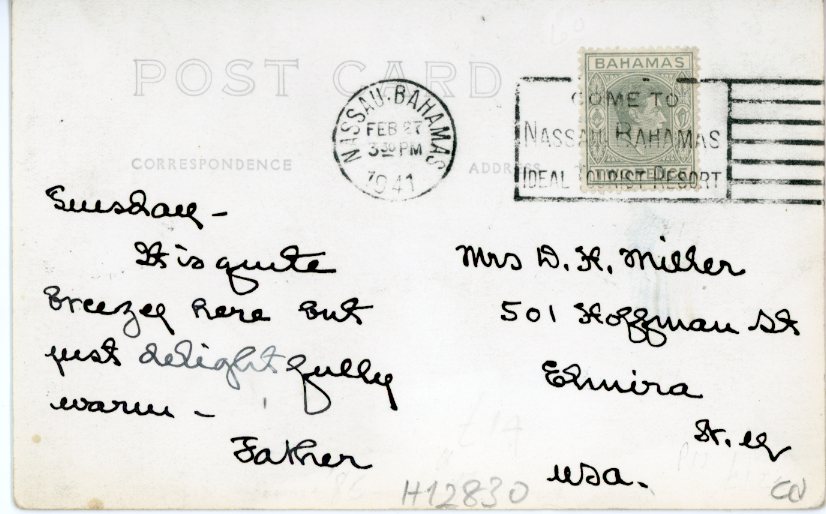 POST CARD
CORRESPONDENCE
ADDRESS
NASSAU·BAHAMAS
FEB 27
3 30 PM
1941
BAHAMAS
COME TO
NASSAU, BAHAMAS
IDEAL TOURIST RESORT
Tuesday -
It is quite
breezey here but
just delightfully
warm -
Father
Mrs D. H. Miller
501 Hoffman St
Elmira
N. Y
USA.
H12830